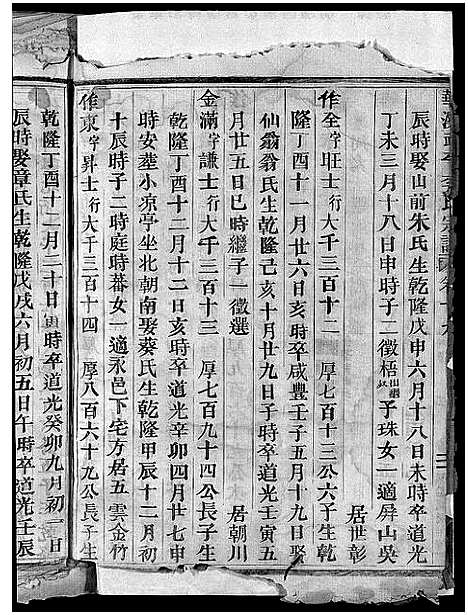 辰時娶山前朱氏生乾隆戊申六月十八日未時卒道光
丁未三月十八日申時子二徵梧出繼 子珠女一適屏山吳
居世彰
作全字旺士行大千三百十二 厚七百十三公六子生乾
隆丁酉十一月廿六日亥時卒咸豐壬子五月十九日娶
仙翁翁氏生乾隆己亥十月廿九日子時卒道光壬寅五
月廿五日巳時繼子一徵選 居朝川
金滿字謙士行大千三百十三 厚七百九十四公長子生
乾隆丁酉十二月十二日亥時卒道光辛卯四月廿七申
時安葬小凉亭坐北朝南娶蔡氏生乾隆甲辰十二月初
十辰時子二時庭時蕃女一適永邑下宅方居五 雲金竹
作東字昇士行大千三百十四 厚八百六十九公長子生
乾隆丁酉十二月二十日寅時卒道光癸卯九月初一日
辰時娶章氏生乾隆戊戌六月初五日午時卒道光壬辰